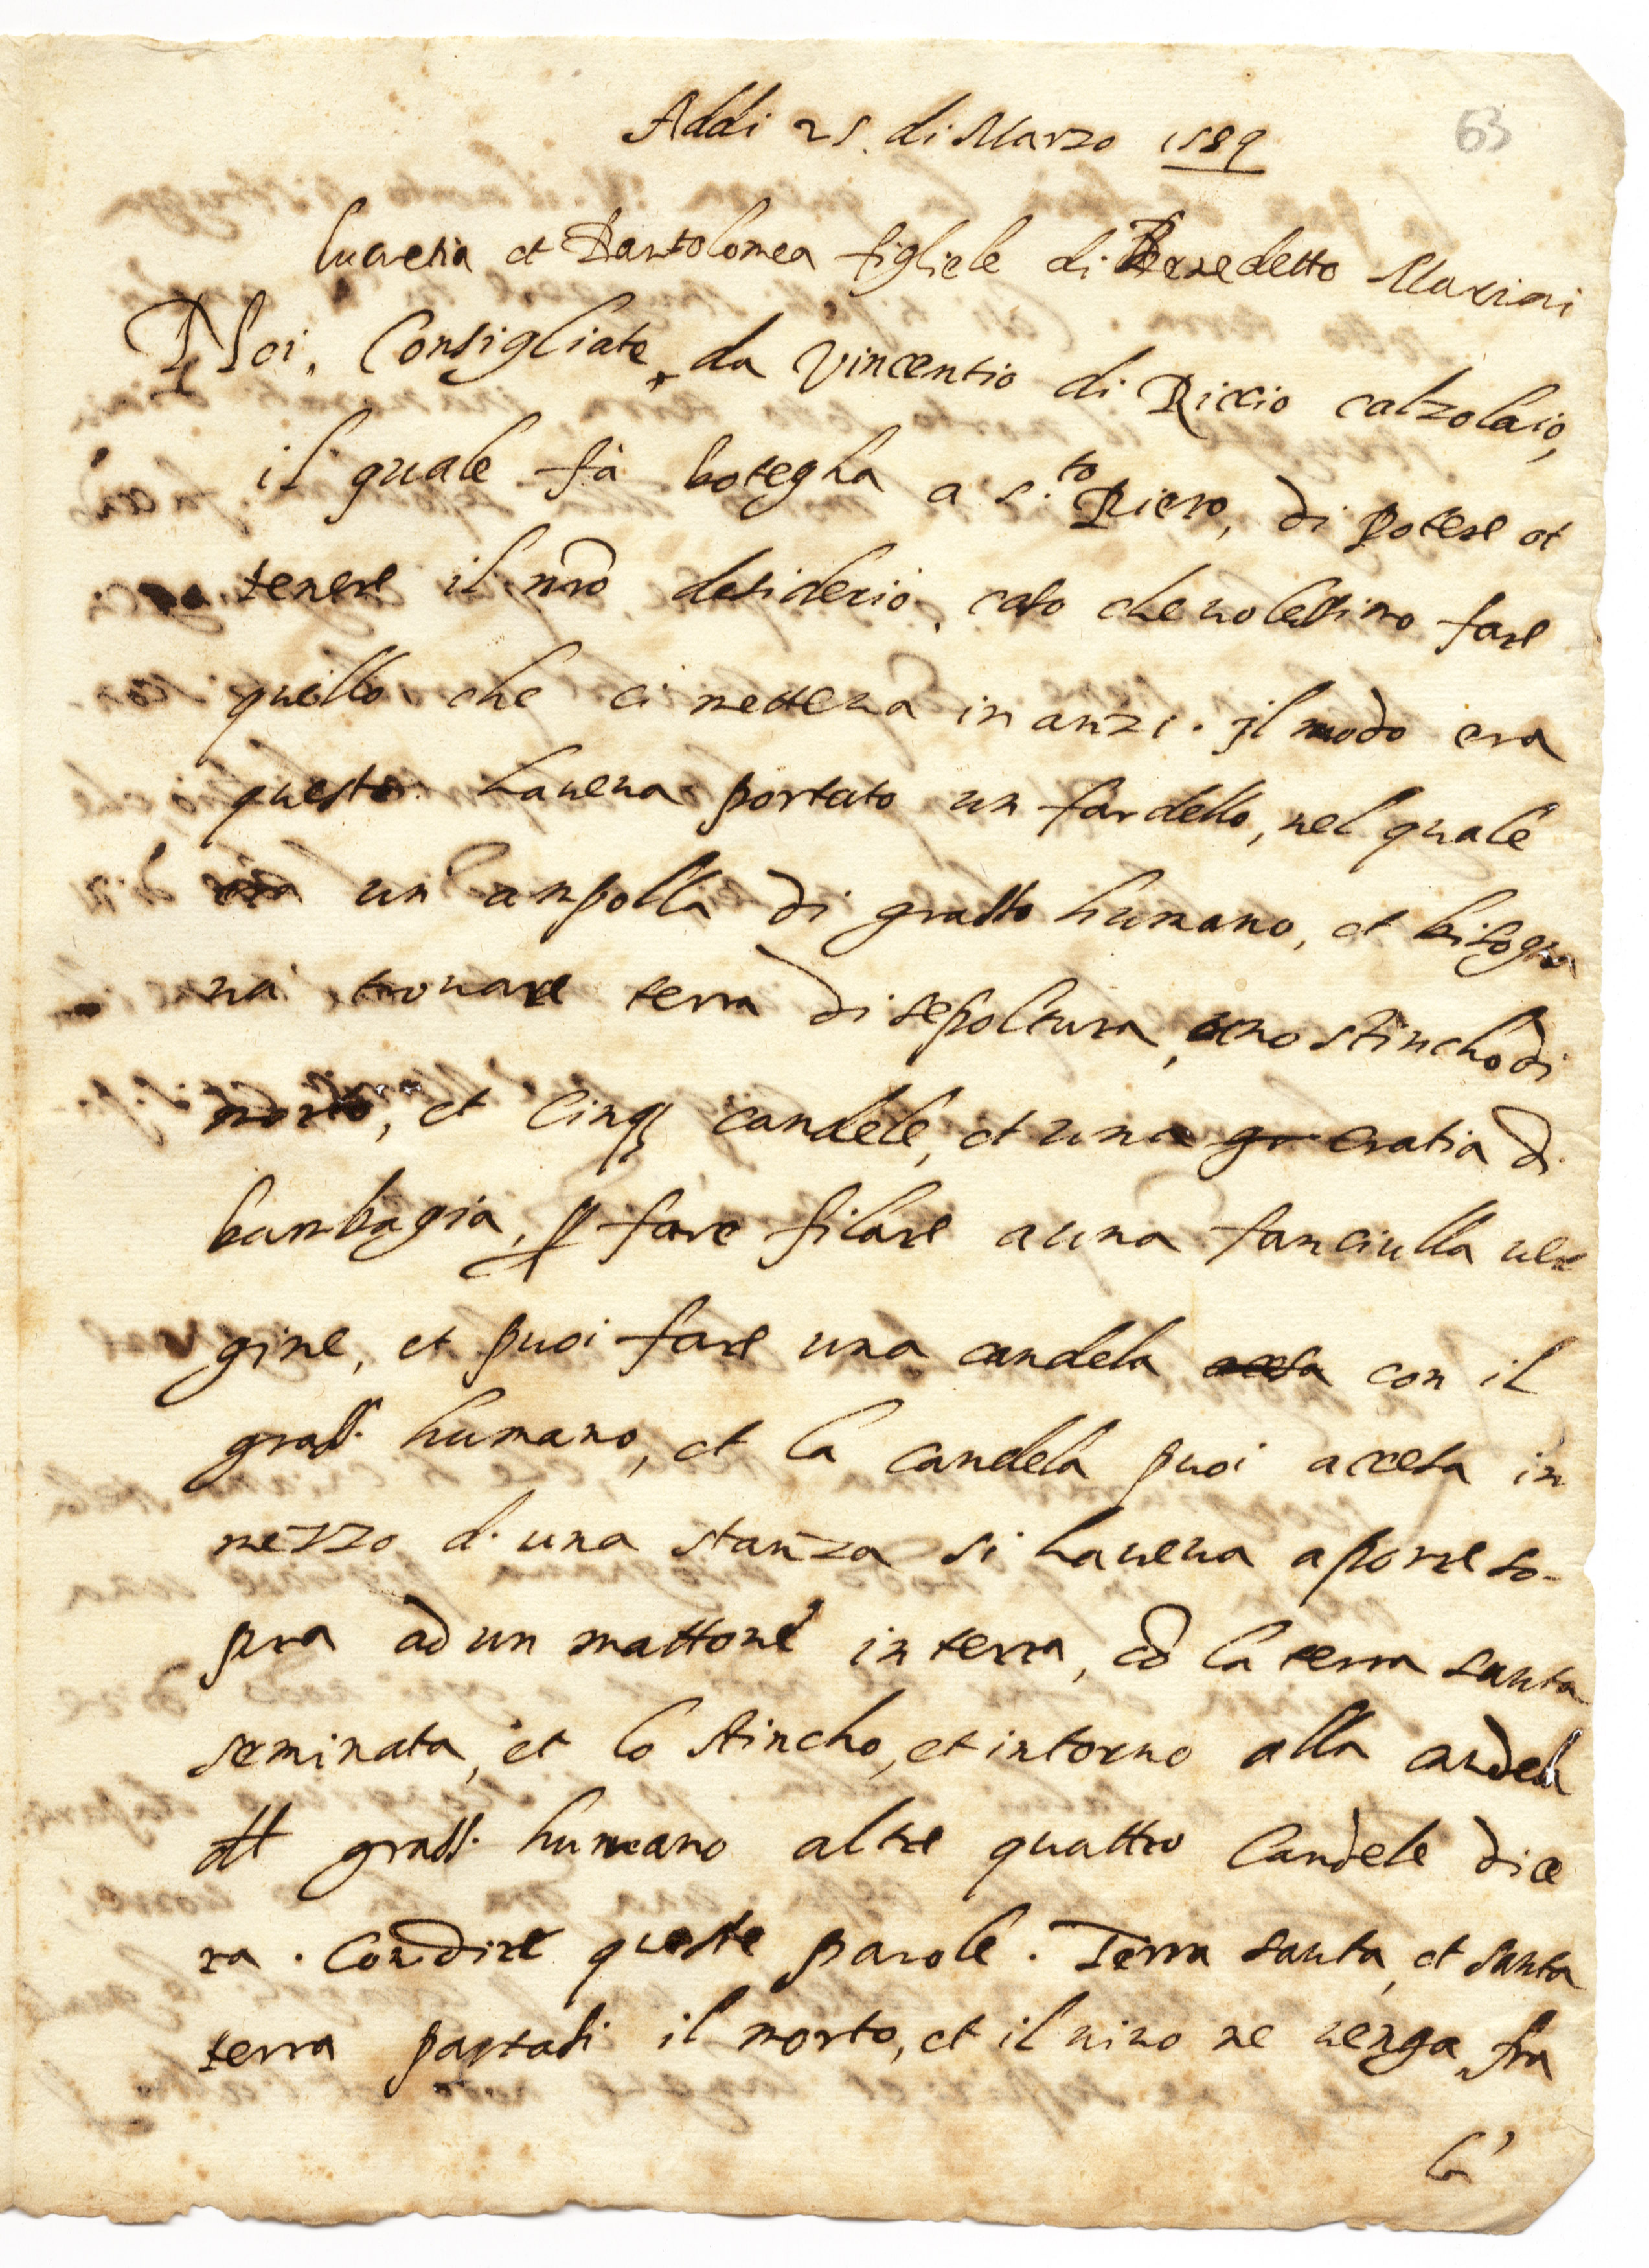 Addi 25. di Marzo 1589
63
Lucretia et Bartolomea figliole di Benedetto Marini
Noi, Consigliate, da Vincentio di Riccio calzolaio,
il quale fà botegha a S.to Piero, di potere ot
tenere il nro desiderio, caso che volessimo fare
quello che ci metteva inanzi. il modo era
questo. haveva portato un fardello, nel quale
era un ampolla di grasso humano, et bisogna
va trovare terra di sepoltura, uno stincho di
morto, et cinq candele, et una gr cratia di
bambagia, p fare filare a una fanciulla ver
gine, et puoi fare una candela accesa con il
grass. humano, et la candela puoi accesa in
mezzo d. una stanza si haveva a porre so-
pra ad un mattone in terra, cō la terra santa
seminata, et lo stincho, et intorno alla candela
di grass. humano altre quattro Candele di ce
ra. Con dire queste parole. Terra santa, et santa
terra partasi il morto, et il vivo ne venga fra
la'